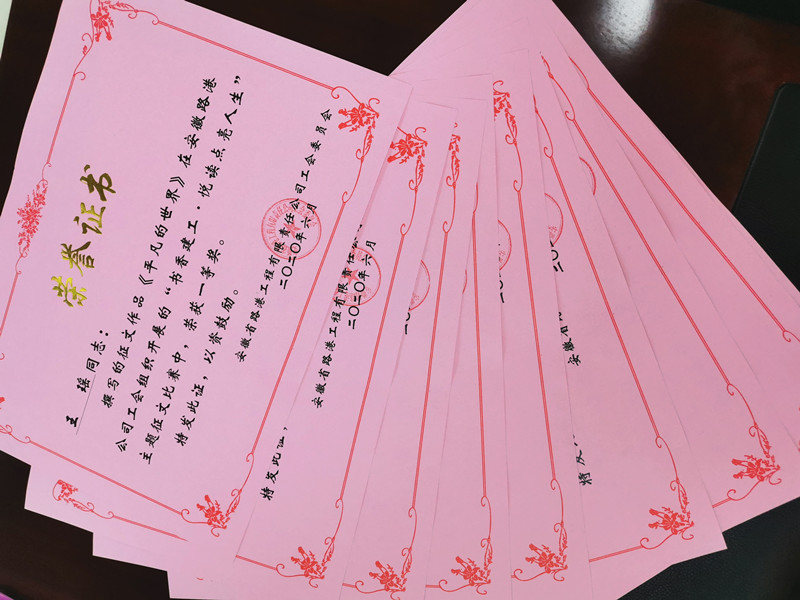 荣誉证书
王 瑶同志：
撰写的征文作品《平凡的世界》在安徽路港
公司工会组织开展的“书香建工·悦读点亮人生”
主题征文比赛中，荣获一等奖。
特发此证，以资鼓励。
安徽省路港工程有限责任公司工会委员会
二〇二〇年六月
特发此证，
安徽省路港工程有限责任公
二〇二〇年六月
二〇
二〇
二〇
安徽省
特发